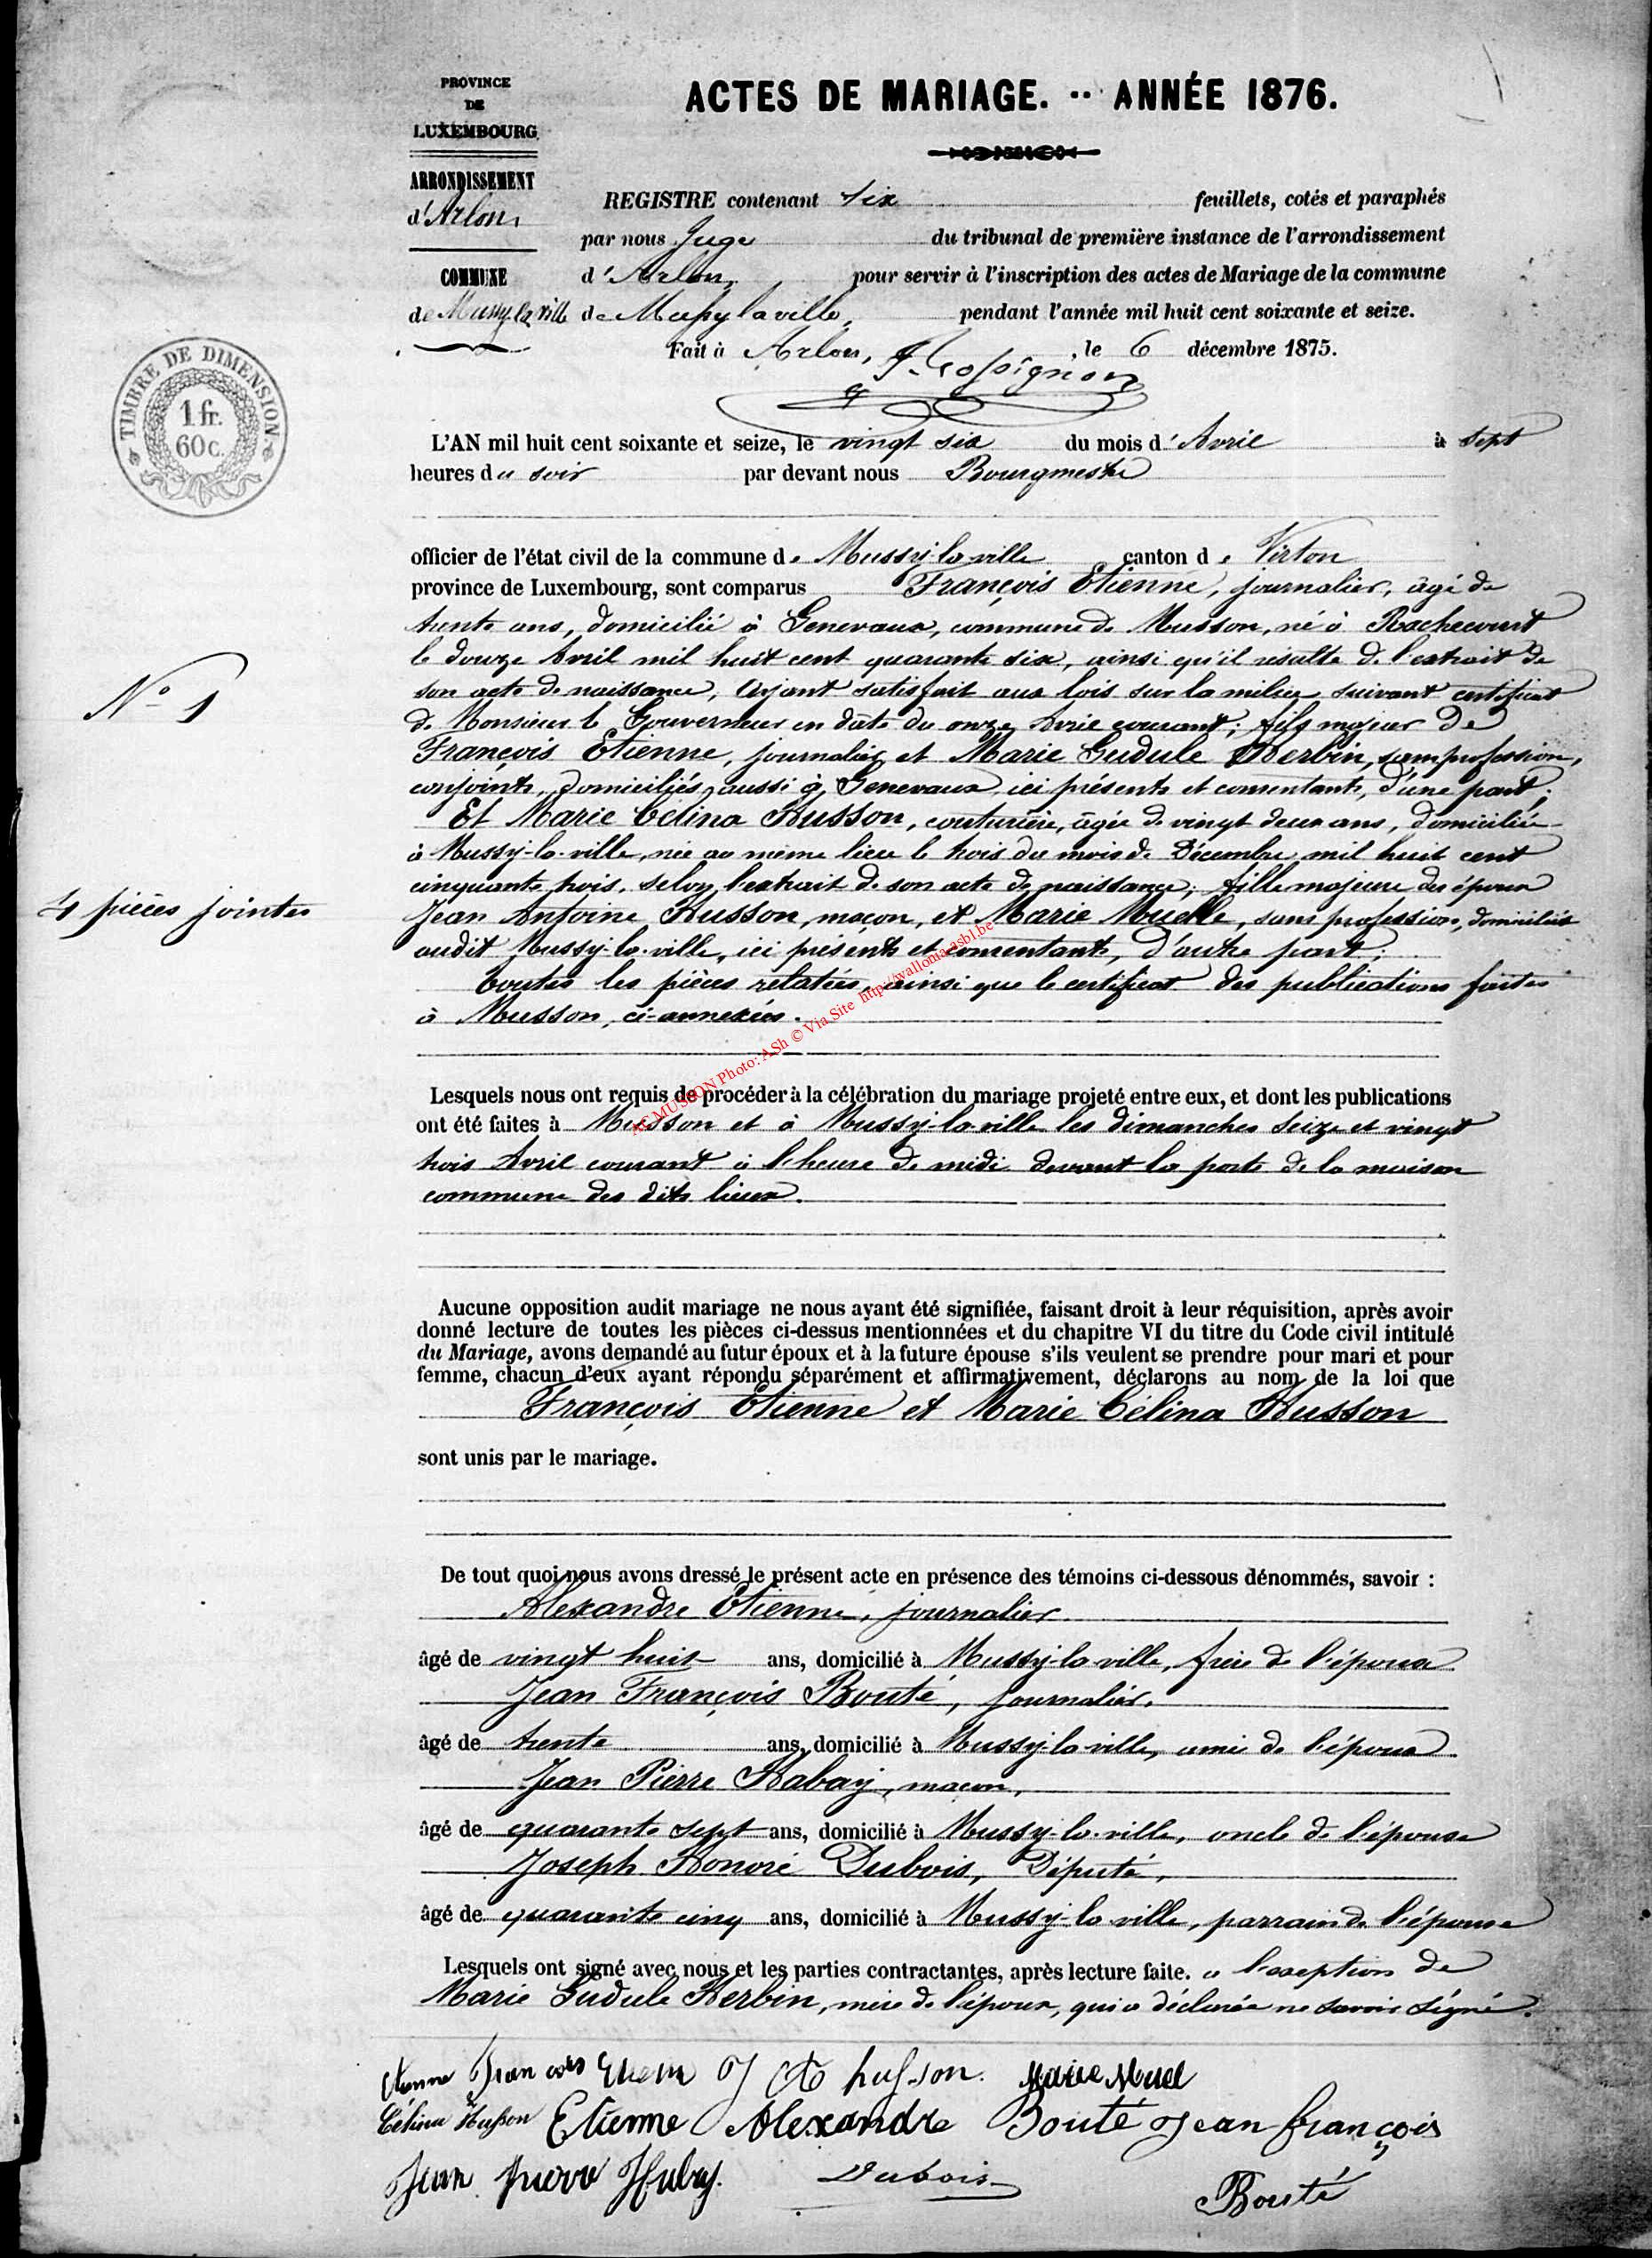 PROVINCE
DE
LUXEMBOURG.
ACTES DE MARIAGE. -- ANNÉE 1876.
ARRONDISSEMENT
d'Arlon,
COMMUNE
de Mussy-la-Ville
REGISTRE contenant six feuillets, cotés et paraphés
par nous Juge du tribunal de première instance de l'arrondissement
d'Arlon, pour servir à l'inscription des actes de Mariage de la commune
de Mussy la ville, pendant l'année mil huit cent soixante et seize.
Fait à Arlon, le 6 décembre 1875.
TIMBRE DE DIMENSION
1 fr.
60 c.
L'AN mil huit cent soixante et seize, le vingt six du mois d'Avril à sept
heures du soir par devant nous Bourgmestre
officier de l'état civil de la commune de Mussy-la-ville canton de Virton
province de Luxembourg, sont comparus François Etienne, journalier, âgé de
trente ans, domicilié à Genevaux, commune de Musson, né à Rachecourt
le douze Avril mil huit cent quarante six, ainsi qu'il résulte de l'extrait de
N° 1
son acte de naissance, Ayant satisfait aux lois sur la milice suivant certificat
de Monsieur le Gouverneur en date du onze Avril courant; fils majeur de
François Etienne, journalier et Marie Gudule Herbin, sans profession,
conjoints, domiciliés aussi à Genevaux, ici présents et consentants, d'une part;
Et Marie Célina Husson, couturière, âgée de vingt deux ans, domiciliée
à Mussy-la-ville, née au même lieu le trois du mois de Décembre mil huit cent
cinquante trois, selon l'extrait de son acte de naissance; fille majeure des époux
4 pièces jointes
Jean Antoine Husson, maçon, et Marie Muelle, sans profession, domiciliés
audit Mussy-la-ville, ici présents et consentants, d'autre part;
Toutes les pièces relatées, ainsi que le certificat des publications faites
à Musson, ci-annexées.
AC MUSSON Photo: ASh © Via Site http://wallonia-asbl.be
Lesquels nous ont requis de procéder à la célébration du mariage projeté entre eux, et dont les publications
ont été faites à Musson et à Mussy-la-ville les dimanches Seize et vingt
trois Avril courant à l'heure de midi devant la porte de la maison
commune des dits lieux.
Aucune opposition audit mariage ne nous ayant été signifiée, faisant droit à leur réquisition, après avoir
donné lecture de toutes les pièces ci-dessus mentionnées et du chapitre VI du titre du Code civil intitulé
du Mariage, avons demandé au futur époux et à la future épouse s'ils veulent se prendre pour mari et pour
femme, chacun d'eux ayant répondu séparément et affirmativement, déclarons au nom de la loi que
François Etienne et Marie Célina Husson
sont unis par le mariage.
De tout quoi nous avons dressé le présent acte en présence des témoins ci-dessous dénommés, savoir :
Alexandre Etienne, journalier
âgé de vingt huit ans, domicilié à Mussy-la-ville, frère de l'époux
Jean François Bouté, journalier,
âgé de trente ans, domicilié à Mussy-la-ville, ami de l'époux
Jean Pierre Habay, maçon,
âgé de quarante sept ans, domicilié à Mussy-la-ville, oncle de l'épouse
Joseph Honoré Dubois, Député,
âgé de quarante cinq ans, domicilié à Mussy-la-ville, parrain de l'épouse
Lesquels ont signé avec nous et les parties contractantes, après lecture faite. à l'exception de
Marie Gudule Herbin, mère de l'époux, qui a déclarée ne savoir signé.
Etienne François Etienne J A husson. Marie Muel
Célina Husson Etienne Alexandre Bouté Jean françois
Jean pierre Habay. Dubois
Bouté